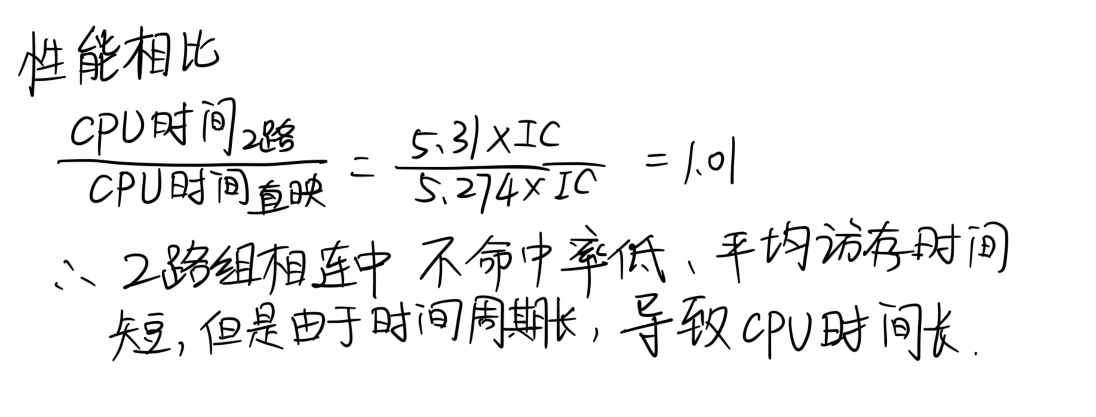 性能相比
CPU时间2路 / CPU时间直映 = 5.31×IC / 5.274×IC = 1.01
∴ 2路组相连中 不命中率低、平均访存时间
短,但是由于时间周期长,导致CPU时间长.